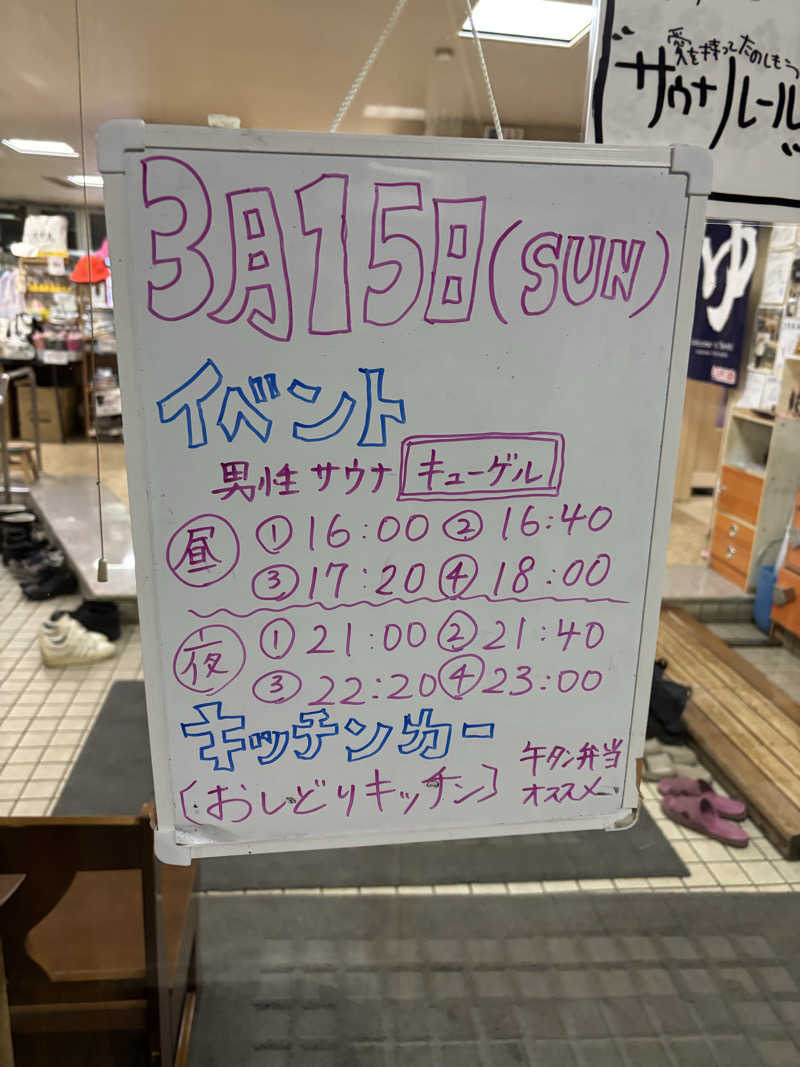 愛を持ってたのしもう
"サウナルール"
ゆ
3月15日(SUN)
イベント
男性サウナ キューゲル
昼 ①16:00 ②16:40
③17:20 ④18:00
夜 ①21:00 ②21:40
③22:20 ④23:00
キッチンカー
〔おしどりキッチン〕
牛タン弁当
オススメ